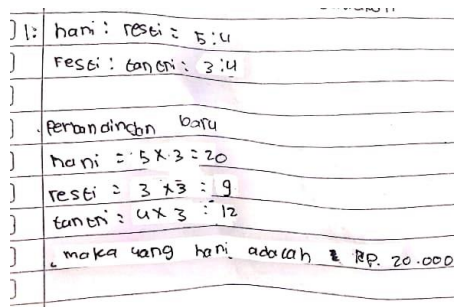 1: hani : resti = 5:4
resti : tantri : 3:4
Perbandingan baru
hani = 5 x 3 = 20
resti = 3 x 3 = 9
tantri = 4 x 3 = 12
maka uang hani adalah RP. 20.000